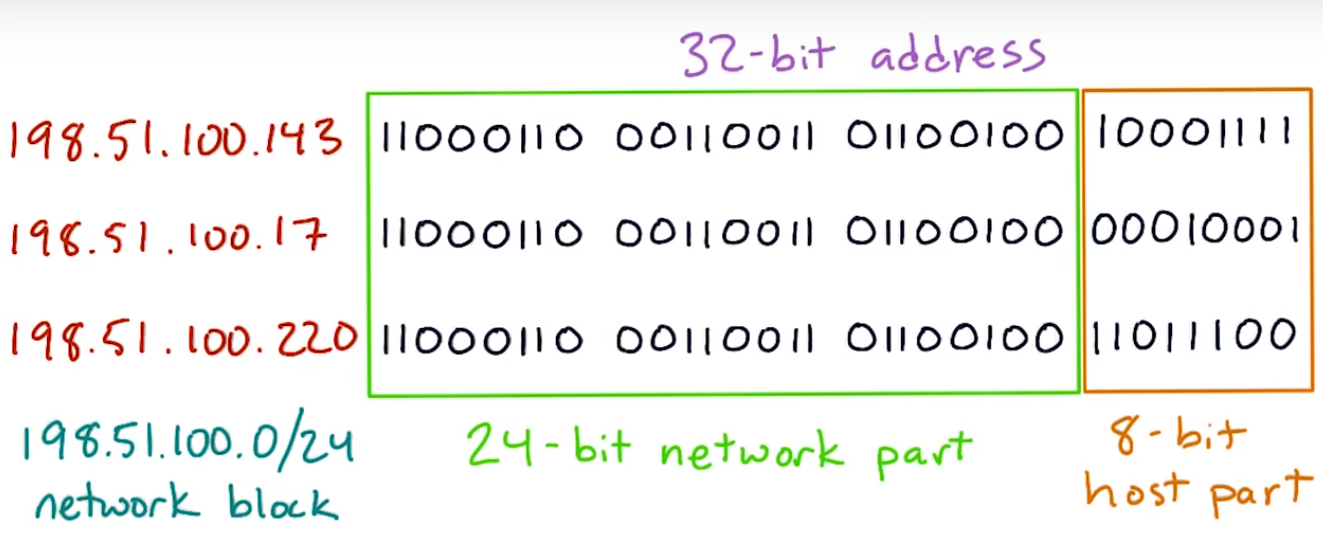 32-bit address
198.51.100.143 11000110 00110011 01100100 10001111
198.51.100.17 11000110 00110011 01100100 00010001
198.51.100.220 11000110 00110011 01100100 11011100
198.51.100.0/24 24-bit network part 8-bit
network block host part